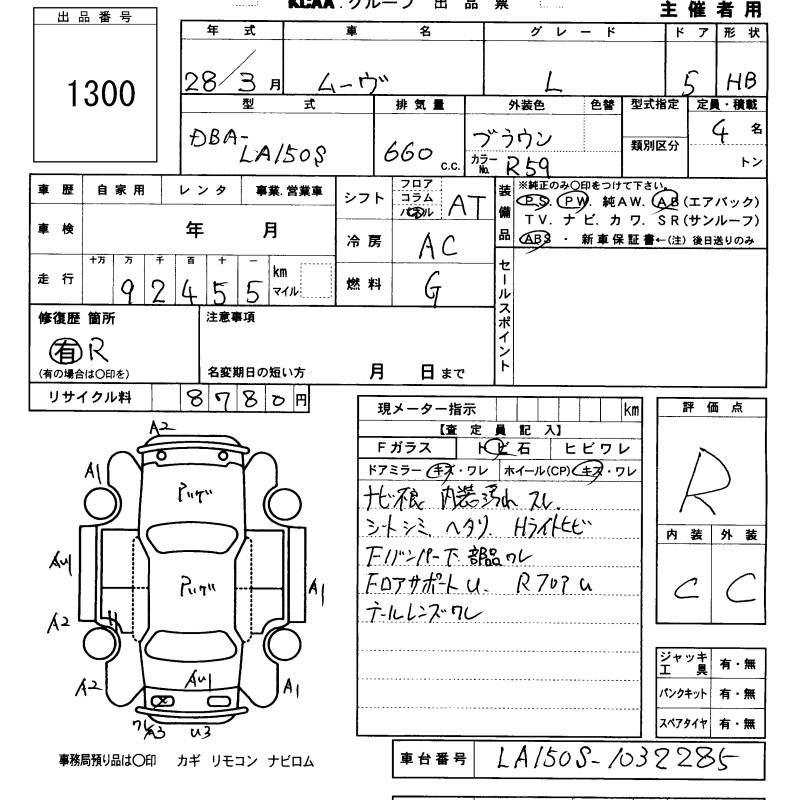 KCAA.グループ 出品票
主催者用
出品番号
1300
年式 車名 グレード ドア 形状
28/3月 ムーヴ L 5 HB
型式 排気量 外装色 色替 型式指定 定員・積載
DBA-LA150S 660 c.c. ブラウン カラーNo. R59 類別区分 4名 トン
車歴 自家用 レンタ 事業.営業車
シフト フロア コラム AT
装備品 ※純正のみ○印をつけて下さい。
P.S. PW. 純AW. AB(エアバック)
TV. ナビ. カワ. SR(サンルーフ)
ABS ・ 新車保証書←(注) 後日送りのみ
車検 年 月
冷房 AC
走行 十万 万 千 百 十 一 km マイル
92455
燃料 G
セールスポイント
修復歴 箇所
有 R
(有の場合は○印を)
注意事項
名変期日の短い方 月 日まで
リサイクル料 8780円
現メーター指示 km
【査定員記入】
Fガラス トビ石 ヒビワレ
ドアミラー キズ・ワレ ホイール(CP) キズ・ワレ
ナビ不良 内装汚れ スレ.
シートシミ. ヘタリ. Hライトヒビ
Fバンパー下部品ワレ
FロアサポートU. RフロアU
テールレンズワレ
評価点
R
内装 外装
C C
ジャッキ工具 有・無
パンクキット 有・無
スペアタイヤ 有・無
A2
A1
アリゲ
AU1
アリゲ
A1
A2
A2
AU1
A1
ワレ A3 U3
事務局預り品は○印 カギ リモコン ナビロム
車台番号 LA150S-1032285